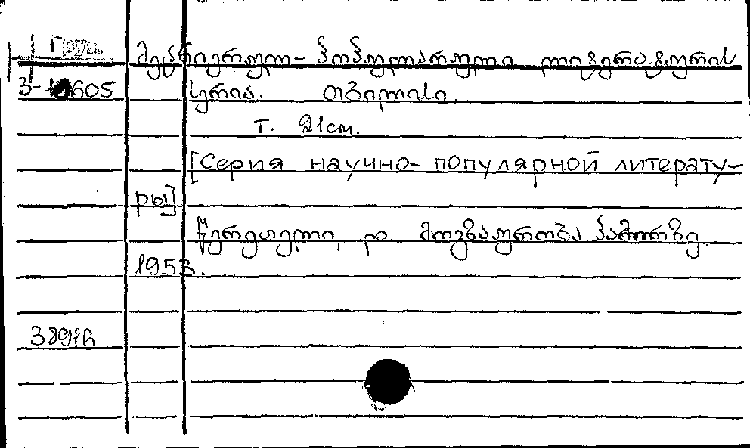 Груз.
მეცნიერულ-პოპულარული ლიტერატურის
სერია. თბილისი.
т. 21см.
[Серия научно-популярной литерату-
ры]
წერეთელი, დ მოგზაურობა პამირზე.
1953.